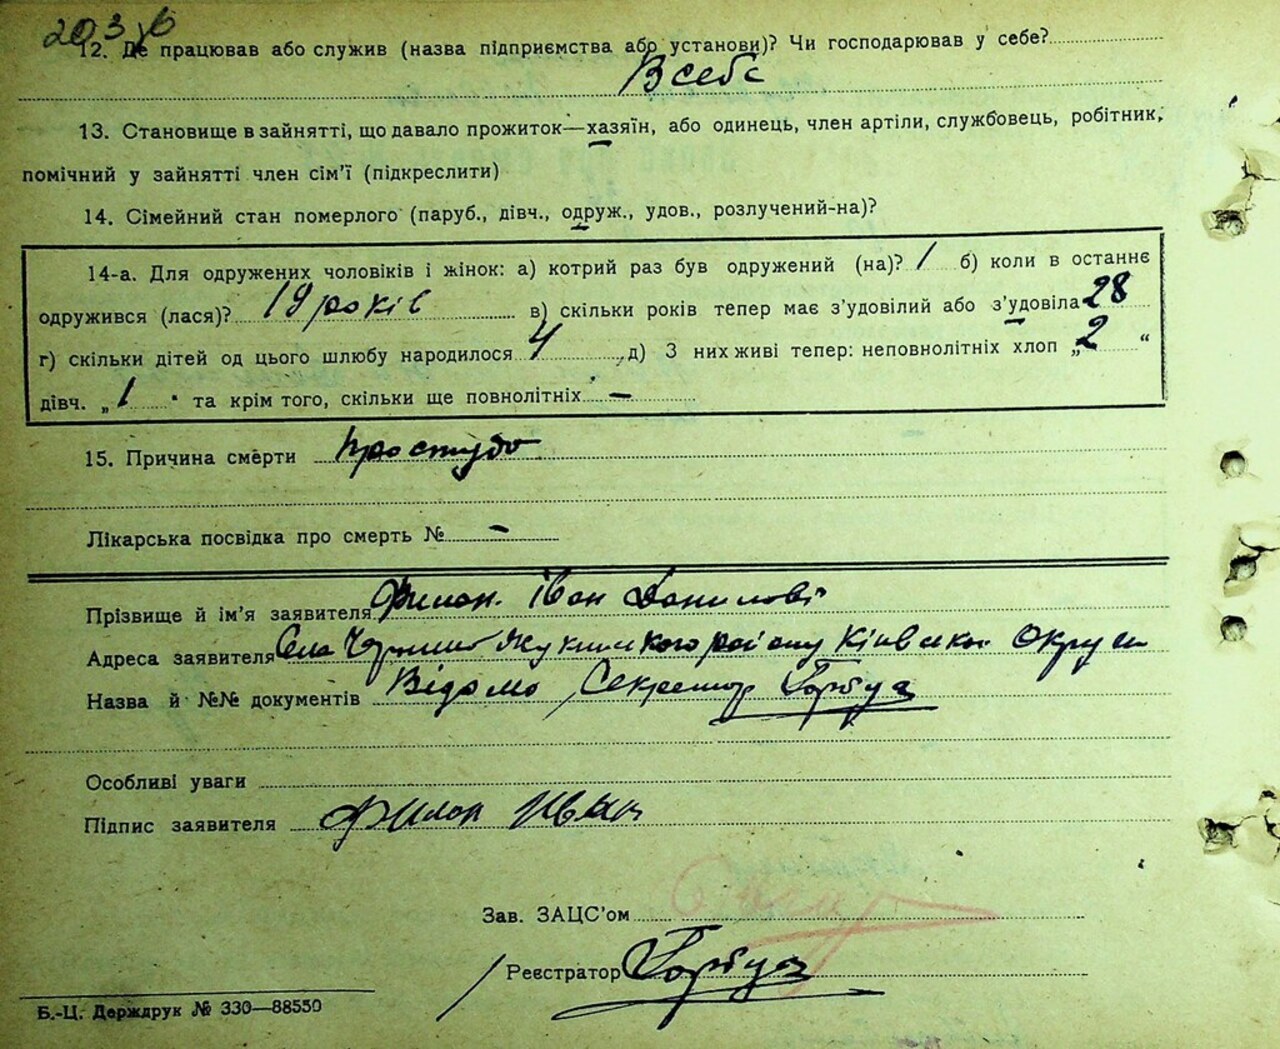 203 б
12. Де працював або служив (назва підприємства або установи)? Чи господарював у себе?
В себе
13. Становище в зайнятті, що давало прожиток—хазяїн, або одинець, член артіли, службовець, робітник,
помічний у зайнятті член сім'ї (підкреслити)
14. Сімейний стан померлого (паруб., дівч., одруж., удов., розлучений-на)?
14-а. Для одружених чоловіків і жінок: а) котрий раз був одружений (на)? 1 б) коли в останнє
одружився (лася)? 19 років в) скільки років тепер має з'удовілий або з'удовіла 28
г) скільки дітей од цього шлюбу народилося 4 д) З них живі тепер: неповнолітніх хлоп „2“
дівч. „1" та крім того, скільки ще повнолітніх —
15. Причина смерти простуда
Лікарська посвідка про смерть № —
Прізвище й ім'я заявителя Филон Іван Данилові
Адреса заявителя Села району Київської Округи
Назва й №№ документів Відомо Секретар Горбуа
Особливі уваги
Підпис заявителя Филон Иван
Зав. ЗАЦС'ом
Реєстратор Горбуа
Б.-Ц. Держдрук № 330—88550